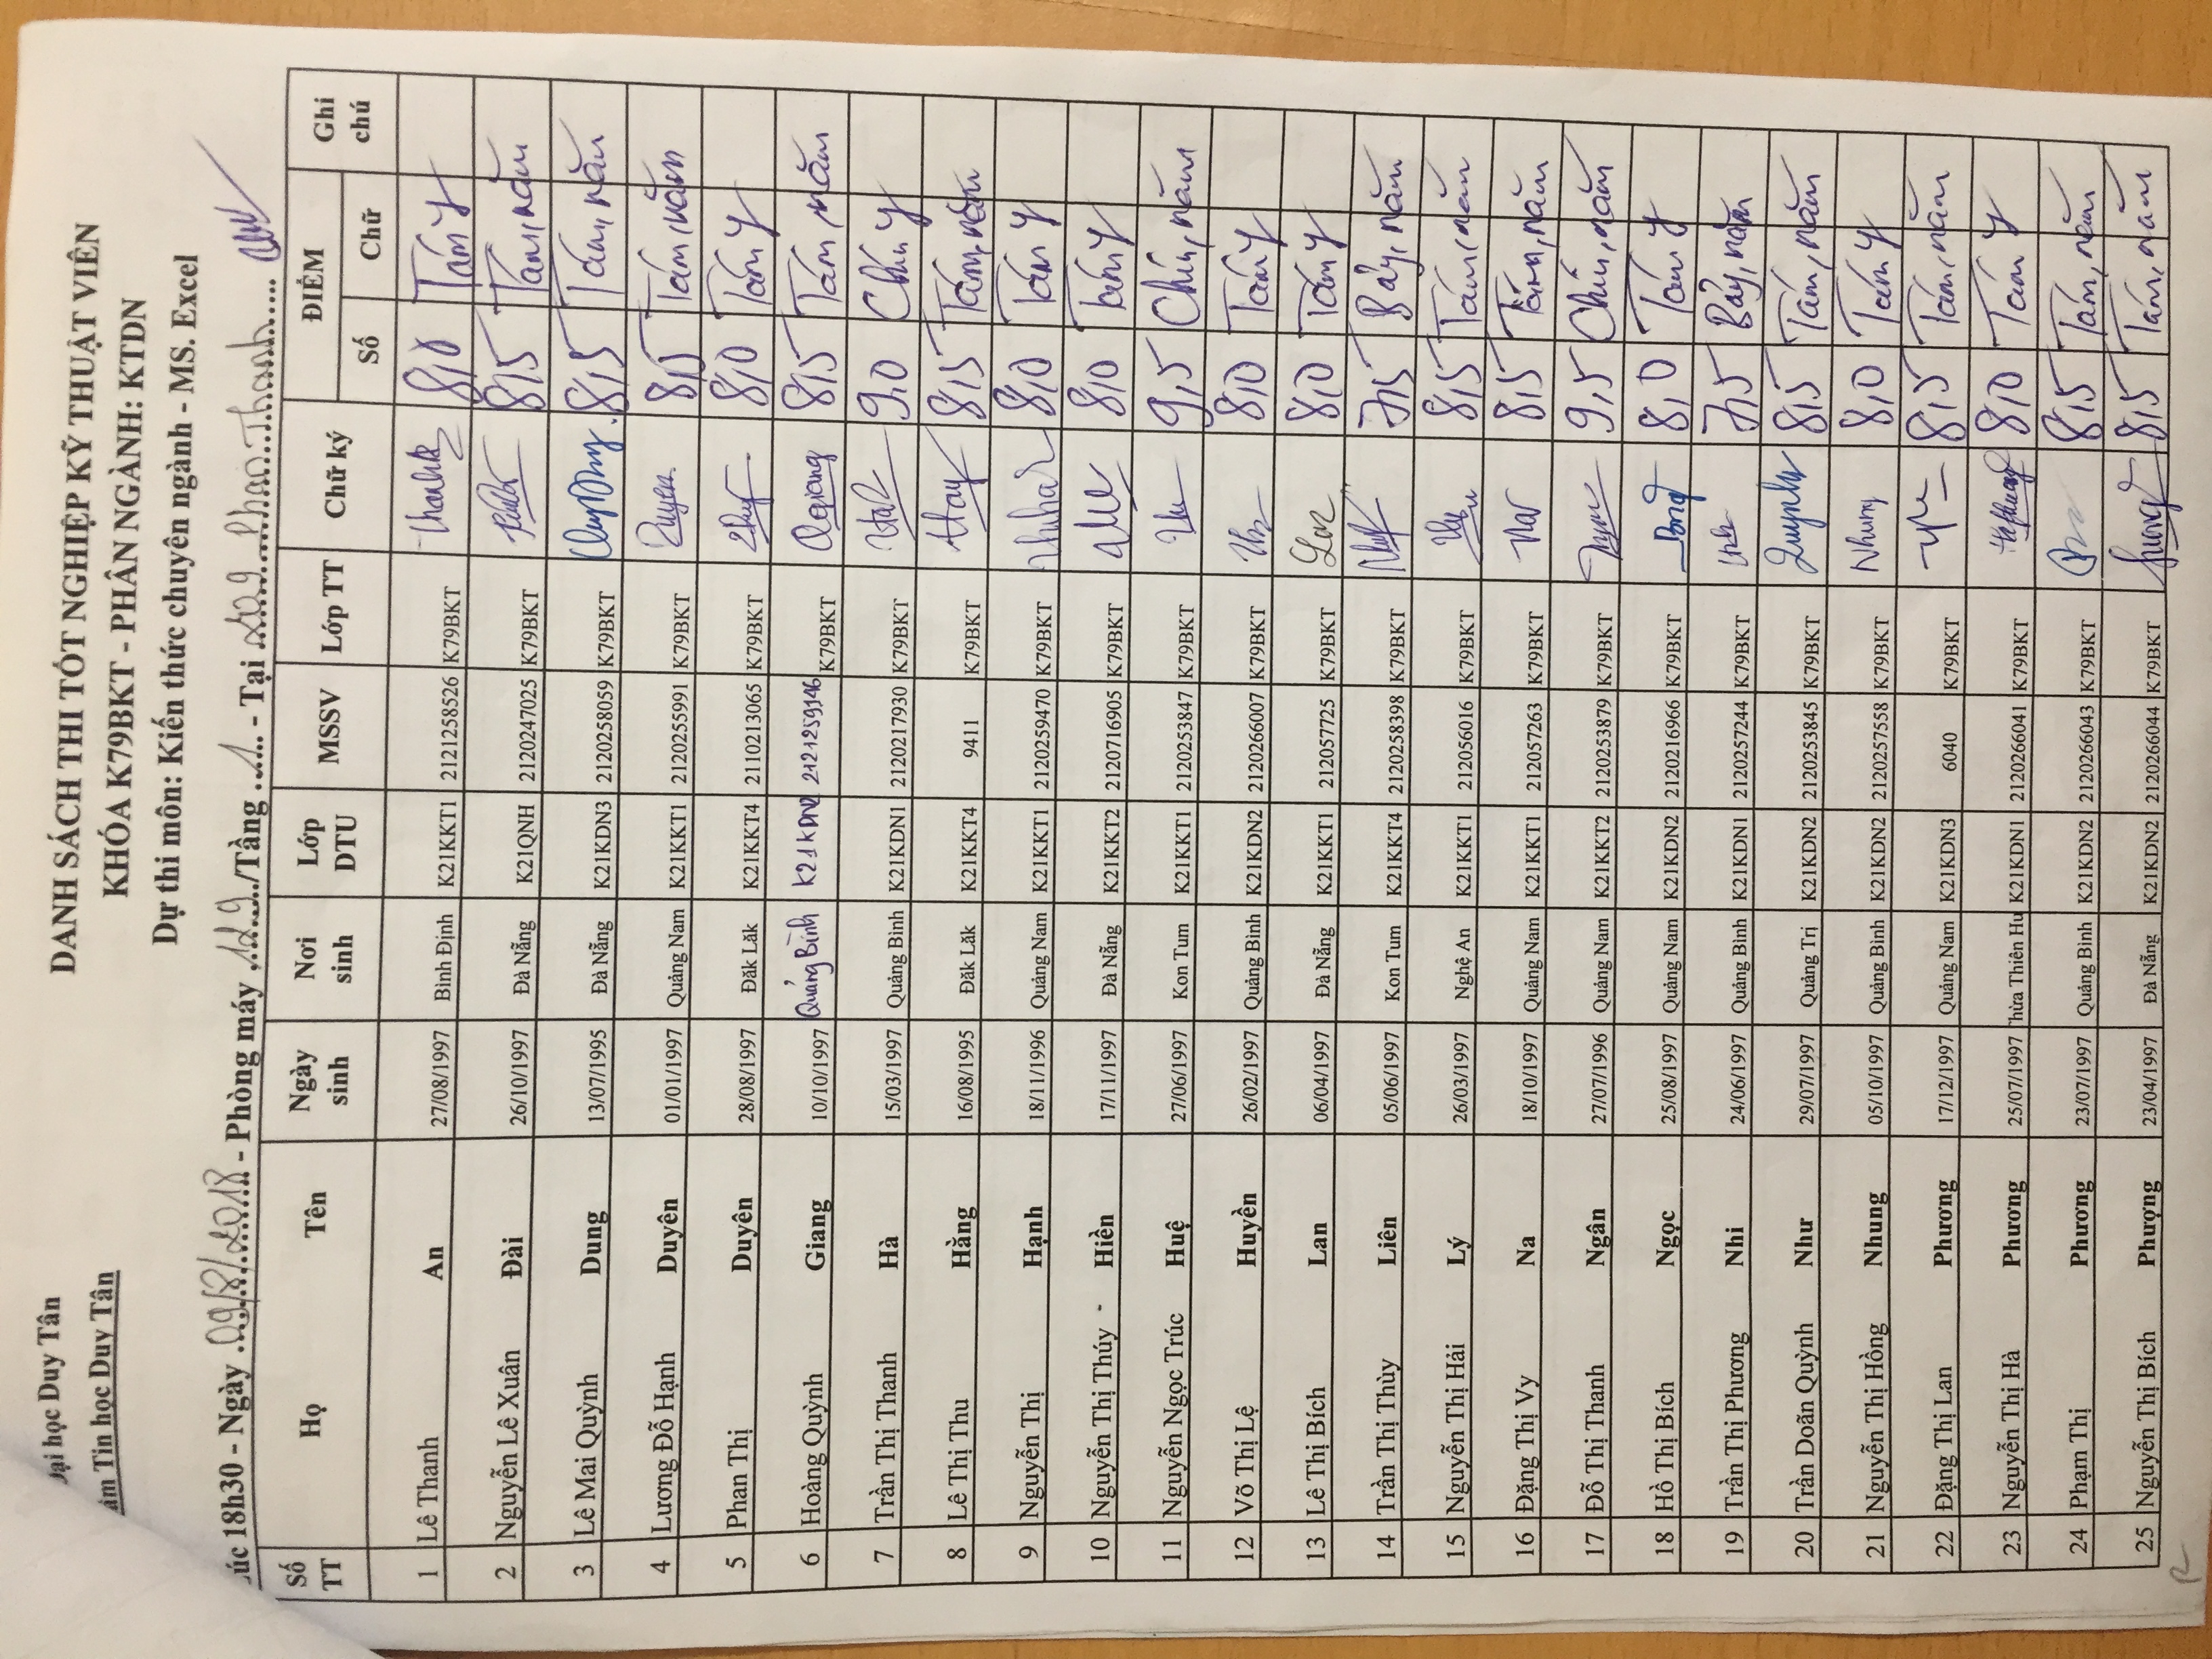 ại học Duy Tân
âm Tin học Duy Tân
DANH SÁCH THI TỐT NGHIỆP KỸ THUẬT VIÊN
KHÓA K79BKT - PHÂN NGÀNH: KTDN
Dự thi môn: Kiến thức chuyên ngành - MS. Excel
úc 18h30 - Ngày 09/8/2018 - Phòng máy 129/Tầng 1 - Tại 209 Phan Thanh
Số TT Họ Tên Ngày sinh Nơi sinh Lớp DTU MSSV Lớp TT Chữ ký ĐIỂM Số Chữ Ghi chú
1 Lê Thanh An 27/08/1997 Bình Định K21KKT1 2121258526 K79BKT 8,0 Tám y
2 Nguyễn Lê Xuân Đài 26/10/1997 Đà Nẵng K21QNH 2120247025 K79BKT 8,5 Tám, năm
3 Lê Mai Quỳnh Dung 13/07/1995 Đà Nẵng K21KDN3 2120258059 K79BKT 8,5 Tám, năm
4 Lương Đỗ Hạnh Duyên 01/01/1997 Quảng Nam K21KKT1 2120255991 K79BKT Duyên 8,5 Tám, năm
5 Phan Thị Duyên 28/08/1997 Đăk Lăk K21KKT4 2110213065 K79BKT 8,0 Tám y
6 Hoàng Quỳnh Giang 10/10/1997 Quảng Bình K21KDN2 2121259146 K79BKT 8,5 Tám, năm
7 Trần Thị Thanh Hà 15/03/1997 Quảng Bình K21KDN1 2120217930 K79BKT 9,0 Chín y
8 Lê Thị Thu Hằng 16/08/1995 Đăk Lăk K21KKT4 9411 K79BKT 8,5 Tám, năm
9 Nguyễn Thị Hạnh 18/11/1996 Quảng Nam K21KKT1 2120259470 K79BKT 8,0 Tám y
10 Nguyễn Thị Thúy - Hiền 17/11/1997 Đà Nẵng K21KKT2 2120716905 K79BKT 8,0 Tám y
11 Nguyễn Ngọc Trúc Huệ 27/06/1997 Kon Tum K21KKT1 2120253847 K79BKT 9,5 Chín, năm
12 Võ Thị Lệ Huyền 26/02/1997 Quảng Bình K21KDN2 2120266007 K79BKT 8,0 Tám y
13 Lê Thị Bích Lan 06/04/1997 Đà Nẵng K21KKT1 212057725 K79BKT Lan 8,0 Tám y
14 Trần Thị Thùy Liên 05/06/1997 Kon Tum K21KKT4 2120258398 K79BKT 7,5 Bảy, năm
15 Nguyễn Thị Hải Lý 26/03/1997 Nghệ An K21KKT1 212056016 K79BKT 8,5 Tám, năm
16 Đặng Thị Vy Na 18/10/1997 Quảng Nam K21KKT1 212057263 K79BKT 8,5 Tám, năm
17 Đỗ Thị Thanh Ngân 27/07/1996 Quảng Nam K21KKT2 2120253879 K79BKT 9,5 Chín, năm
18 Hồ Thị Bích Ngọc 25/08/1997 Quảng Nam K21KDN2 2120216966 K79BKT 8,0 Tám y
19 Trần Thị Phương Nhi 24/06/1997 Quảng Bình K21KDN1 2120257244 K79BKT 7,5 Bảy, năm
20 Trần Doãn Quỳnh Như 29/07/1997 Quảng Trị K21KDN2 2120253845 K79BKT Quỳnh 8,5 Tám, năm
21 Nguyễn Thị Hồng Nhung 05/10/1997 Quảng Bình K21KDN2 2120257558 K79BKT Nhung 8,0 Tám y
22 Đặng Thị Lan Phương 17/12/1997 Quảng Nam K21KDN3 6040 K79BKT 8,5 Tám, năm
23 Nguyễn Thị Hà Phương 25/07/1997 hừa Thiên Hu K21KDN1 2120266041 K79BKT 8,0 Tám y
24 Phạm Thị Phương 23/07/1997 Quảng Bình K21KDN2 2120266043 K79BKT 8,5 Tám, năm
25 Nguyễn Thị Bích Phượng 23/04/1997 Đà Nẵng K21KDN2 2120266044 K79BKT 8,5 Tám, năm